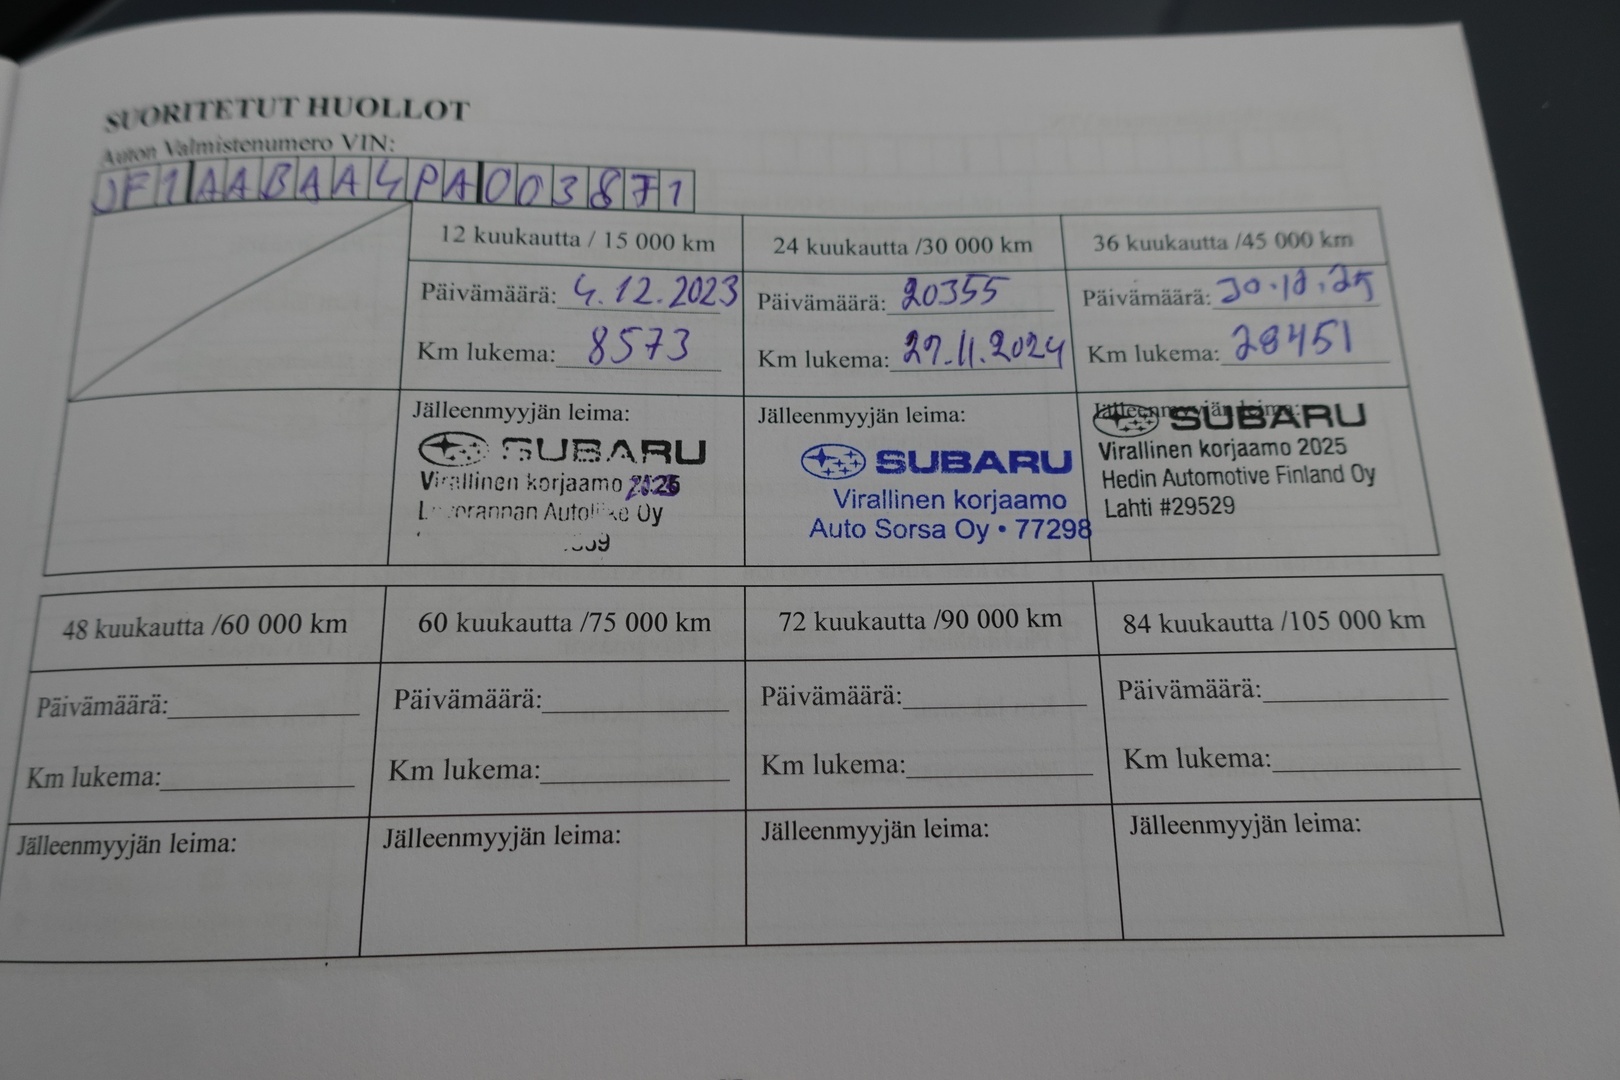 SUORITETUT HUOLLOT
Auton Valmistenumero VIN:
JF1AABAA4PA003871
12 kuukautta / 15 000 km
24 kuukautta /30 000 km
36 kuukautta /45 000 km
Päivämäärä: 4.12.2023
Päivämäärä: 20355
Päivämäärä:
Km lukema: 8573
Km lukema: 27.11.2024
Km lukema: 28451
Jälleenmyyjän leima:
SUBARU
Virallinen korjaamo
Oy
Jälleenmyyjän leima:
SUBARU
Virallinen korjaamo
Auto Sorsa Oy • 77298
Jälleenmyyjän leima:
SUBARU
Virallinen korjaamo 2025
Hedin Automotive Finland Oy
Lahti #29529
48 kuukautta /60 000 km
60 kuukautta /75 000 km
72 kuukautta /90 000 km
84 kuukautta /105 000 km
Päivämäärä:
Päivämäärä:
Päivämäärä:
Päivämäärä:
Km lukema:
Km lukema:
Km lukema:
Km lukema:
Jälleenmyyjän leima:
Jälleenmyyjän leima:
Jälleenmyyjän leima:
Jälleenmyyjän leima: